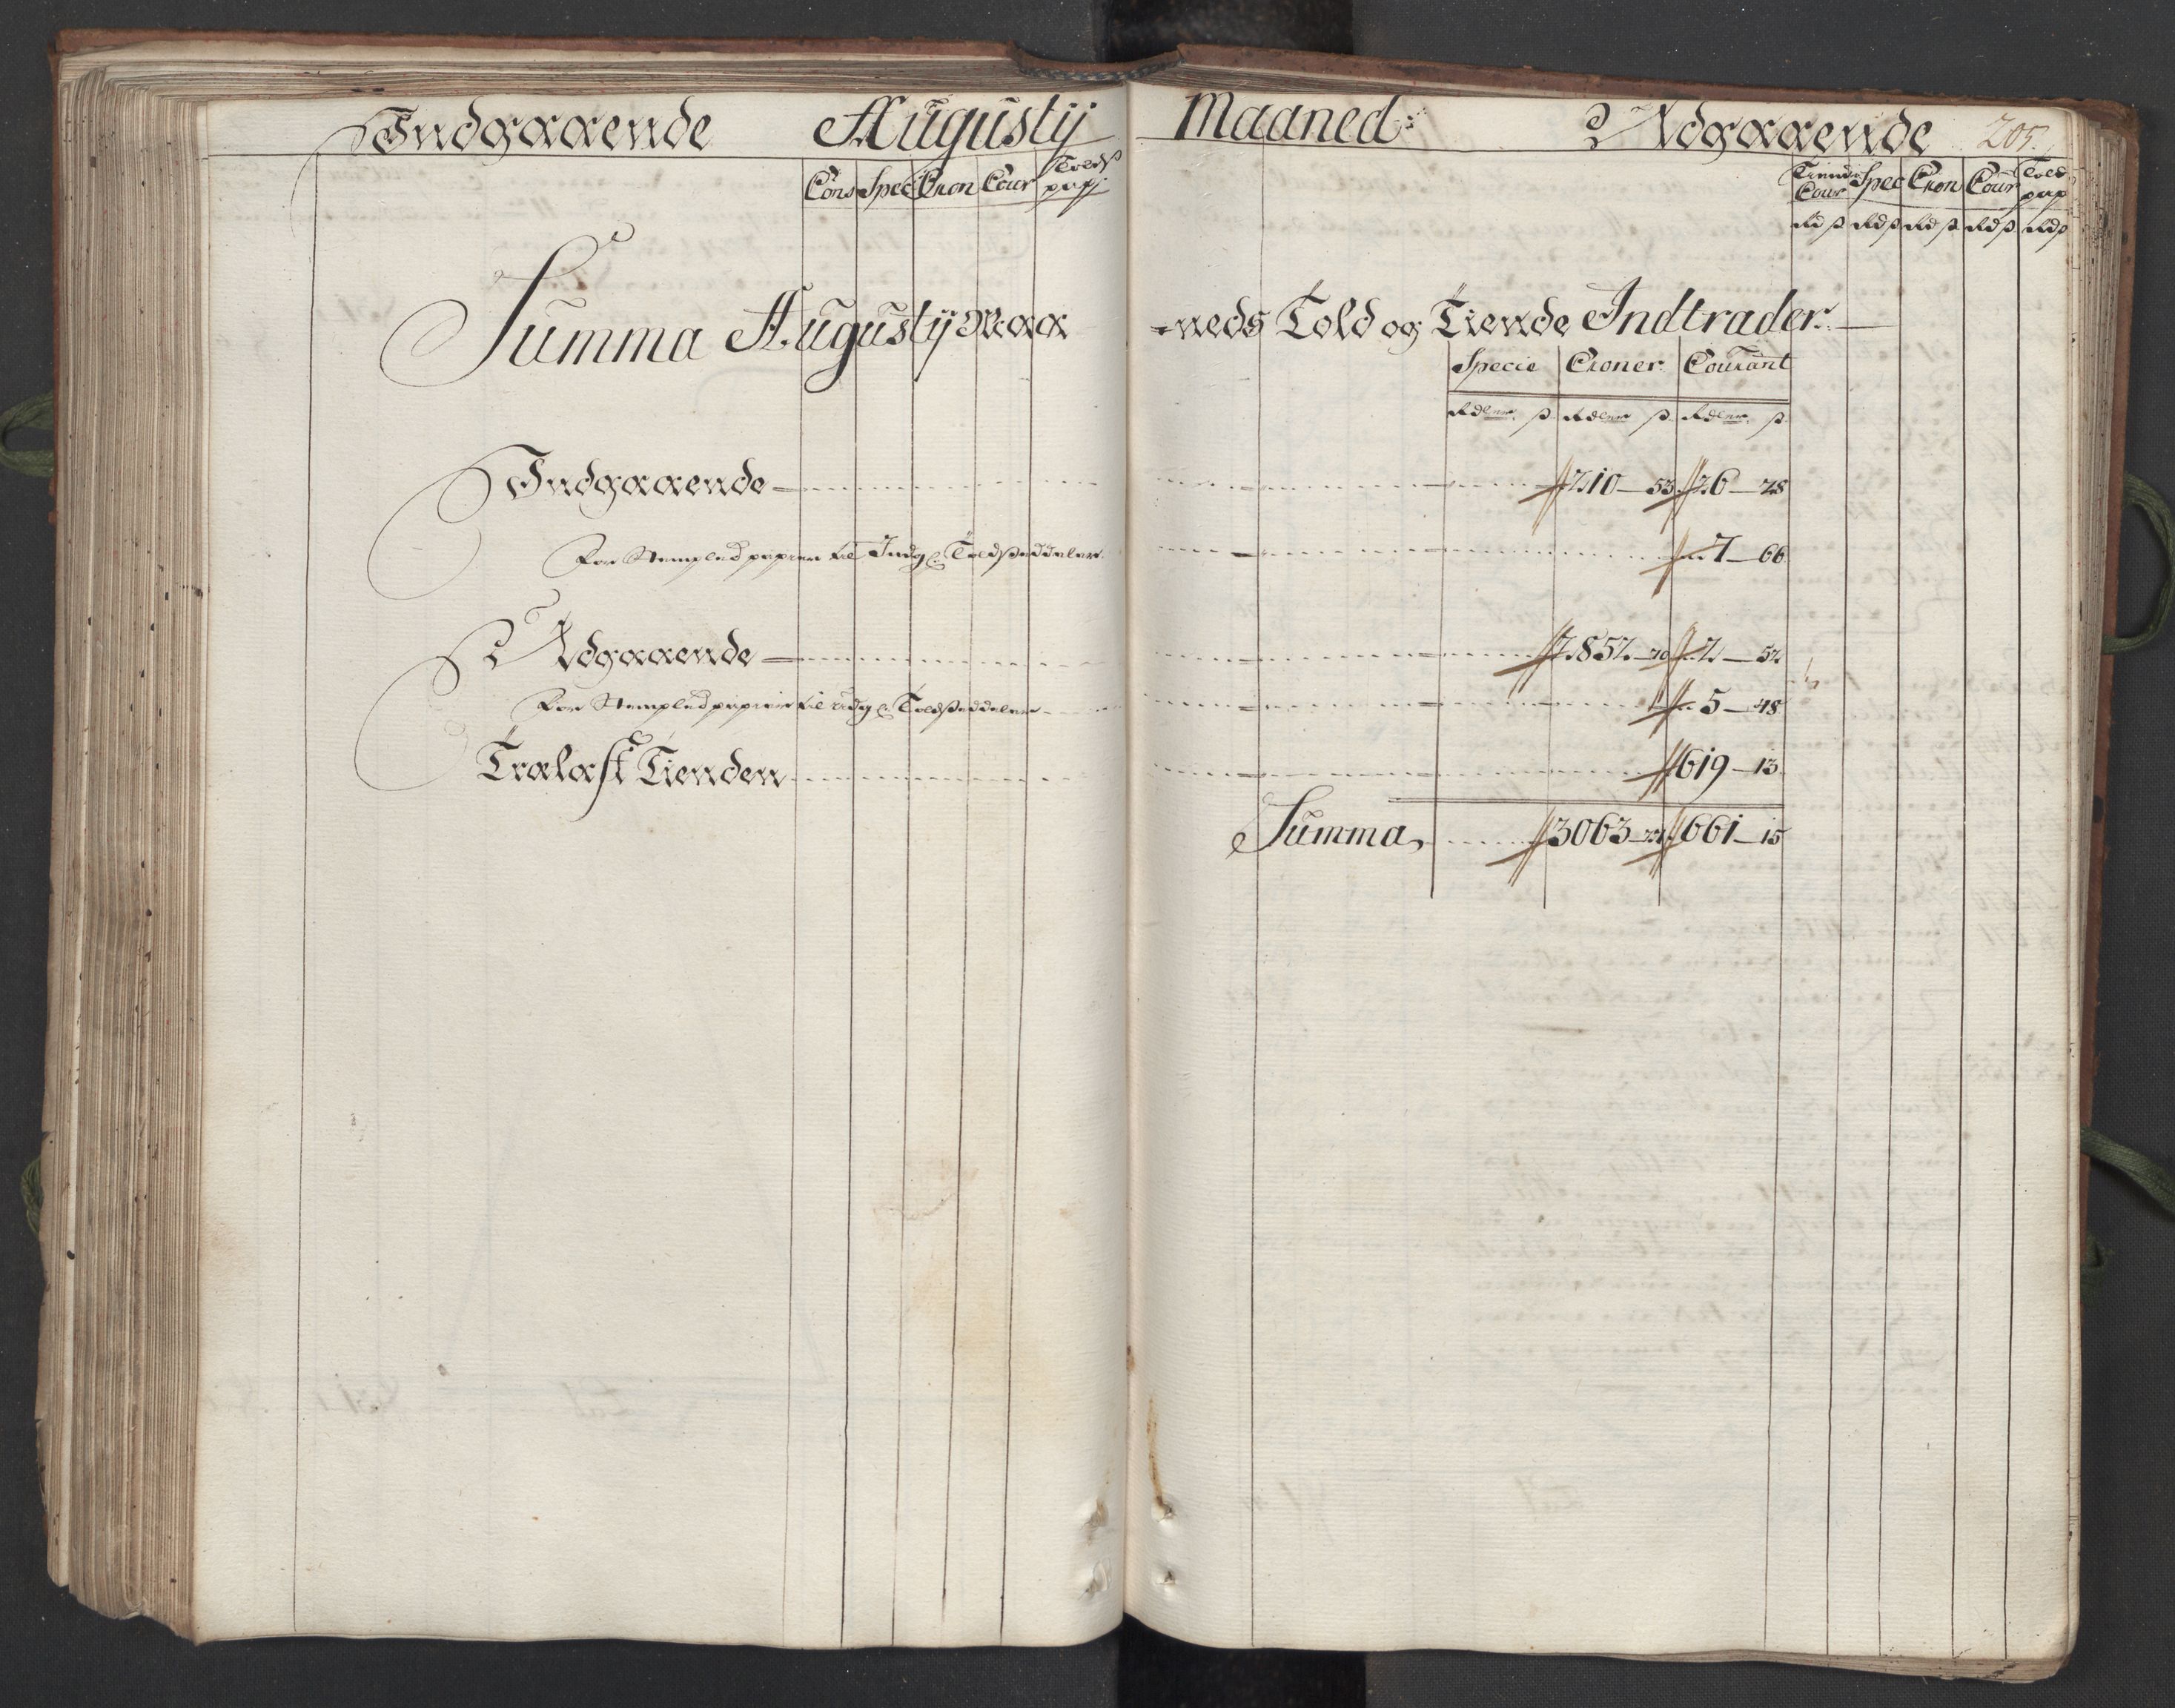 Indgaaende Augustij Maaned: Udgaaende 205.
Cons Spec Cron Cour Told papj
Tiende Cour Spec Cron Cour Told pap
Rd ß Rd ß Rd ß Rd ß Rd ß
Summa Augustij Maa=neds Told og Tiende Indtrader.
Specie Croner Courant
Rdler ß Rdler ß Rdler ß
Indgaaende 210 — 53 26 — 28
For Stempled papier til Indg: Toldseddeler 7 — 66
Udgaaende 2852 — 70 2 — 52
For Stempled papier til udg: Toldseddeler 5 — 48
Trælast Tienden 619 — 13
Summa, 3063 — 27 661 — 15